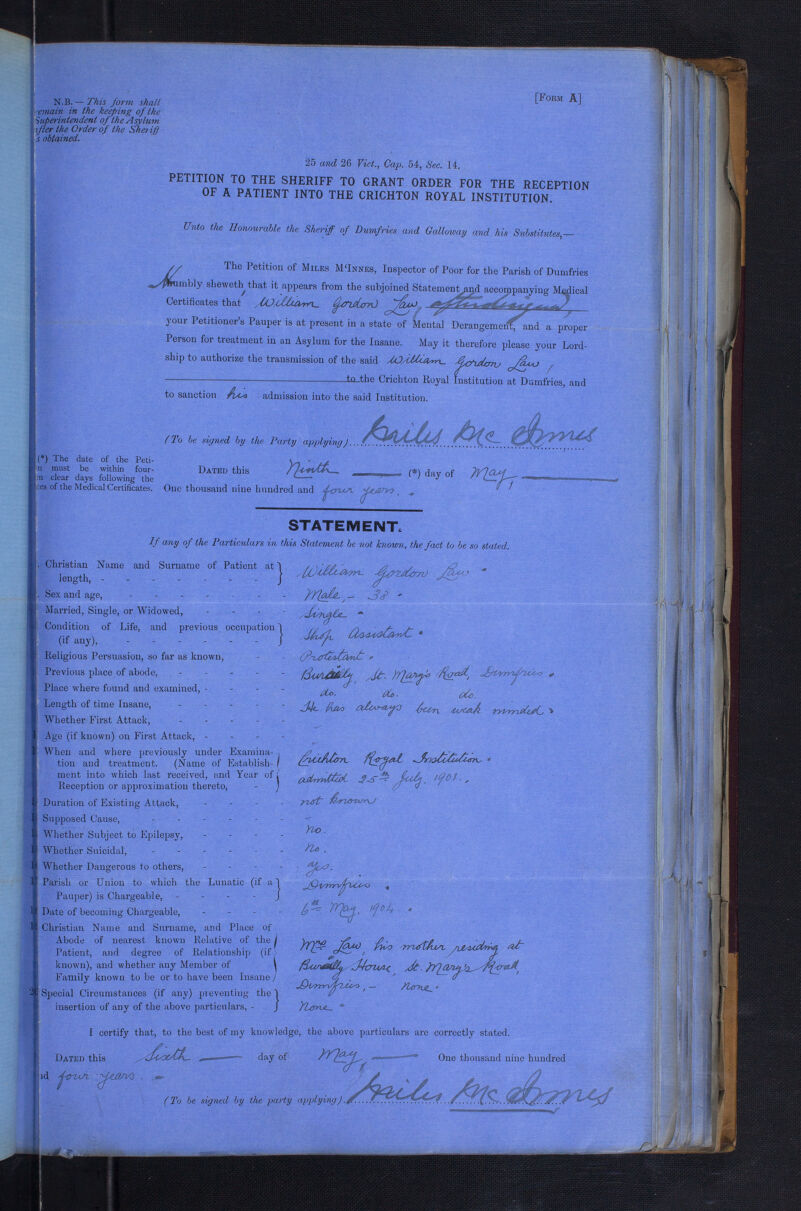 N.B. — This form shall
remain in the keeping of the
Superintendent of the Asylum
after the Order of the Sheriff
is obtained.
[Form A]
25 and 26 Vict., Cap. 54, Sec. 14.
PETITION TO THE SHERIFF TO GRANT ORDER FOR THE RECEPTION
OF A PATIENT INTO THE CRICHTON ROYAL INSTITUTION.
Unto the Honourable the Sheriff of Dumfries and Galloway and his Substitutes,—
The Petition of Miles M'Innes, Inspector of Poor for the Parish of Dumfries
Humbly sheweth that it appears from the subjoined Statement and accompanying Medical
Certificates that William Gordon Law, afterdesigned,
your Petitioner's Pauper is at present in a state of Mental Derangement, and a proper
Person for treatment in an Asylum for the Insane. May it therefore please your Lord-
ship to authorize the transmission of the said William Gordon Law,
to the Crichton Royal Institution at Dumfries, and
to sanction his admission into the said Institution.
(To be signed by the Party applying) Miles McInnes
(*) The date of the Peti-
n must be within four-
n clear days following the
es of the Medical Certificates.
Dated this Ninth (*) day of May,
One thousand nine hundred and four years.
STATEMENT.
If any of the Particulars in this Statement be not known, the fact to be so stated.
Christian Name and Surname of Patient at
length, - William Gordon Law
Sex and age, - Male, - 38
Married, Single, or Widowed, - Single
Condition of Life, and previous occupation
(if any), - Shop Assistant
Religious Persuasion, so far as known, - Protestant
Previous place of abode, - St. Mary's Road, Dumfries
Place where found and examined, - do. do. do.
Length of time Insane, - He has always been weak minded
Whether First Attack, -
Age (if known) on First Attack, -
When and where previously under Examina-
tion and treatment. (Name of Establish- Crichton Royal Institution
ment into which last received, and Year of admitted 25th July, 1901.
Reception or approximation thereto, -
Duration of Existing Attack, - not known
Supposed Cause, - -
Whether Subject to Epilepsy, - No.
Whether Suicidal, - No.
Whether Dangerous to others, - Yes.
17 Parish or Union to which the Lunatic (if a
Pauper) is Chargeable, - Dumfries
Date of becoming Chargeable, - 6th May, 1904.
Christian Name and Surname, and Place of
Abode of nearest known Relative of the
Patient, and degree of Relationship (if Mrs Law, his mother, residing at
known), and whether any Member of House, St. Mary's Road,
Family known to be or to have been Insane Dumfries, - None.
20 Special Circumstances (if any) preventing the
insertion of any of the above particulars, - None
I certify that, to the best of my knowledge, the above particulars are correctly stated.
Dated this Sixth day of May, One thousand nine hundred
nd four years.
(To be signed by the party applying) Miles McInnes